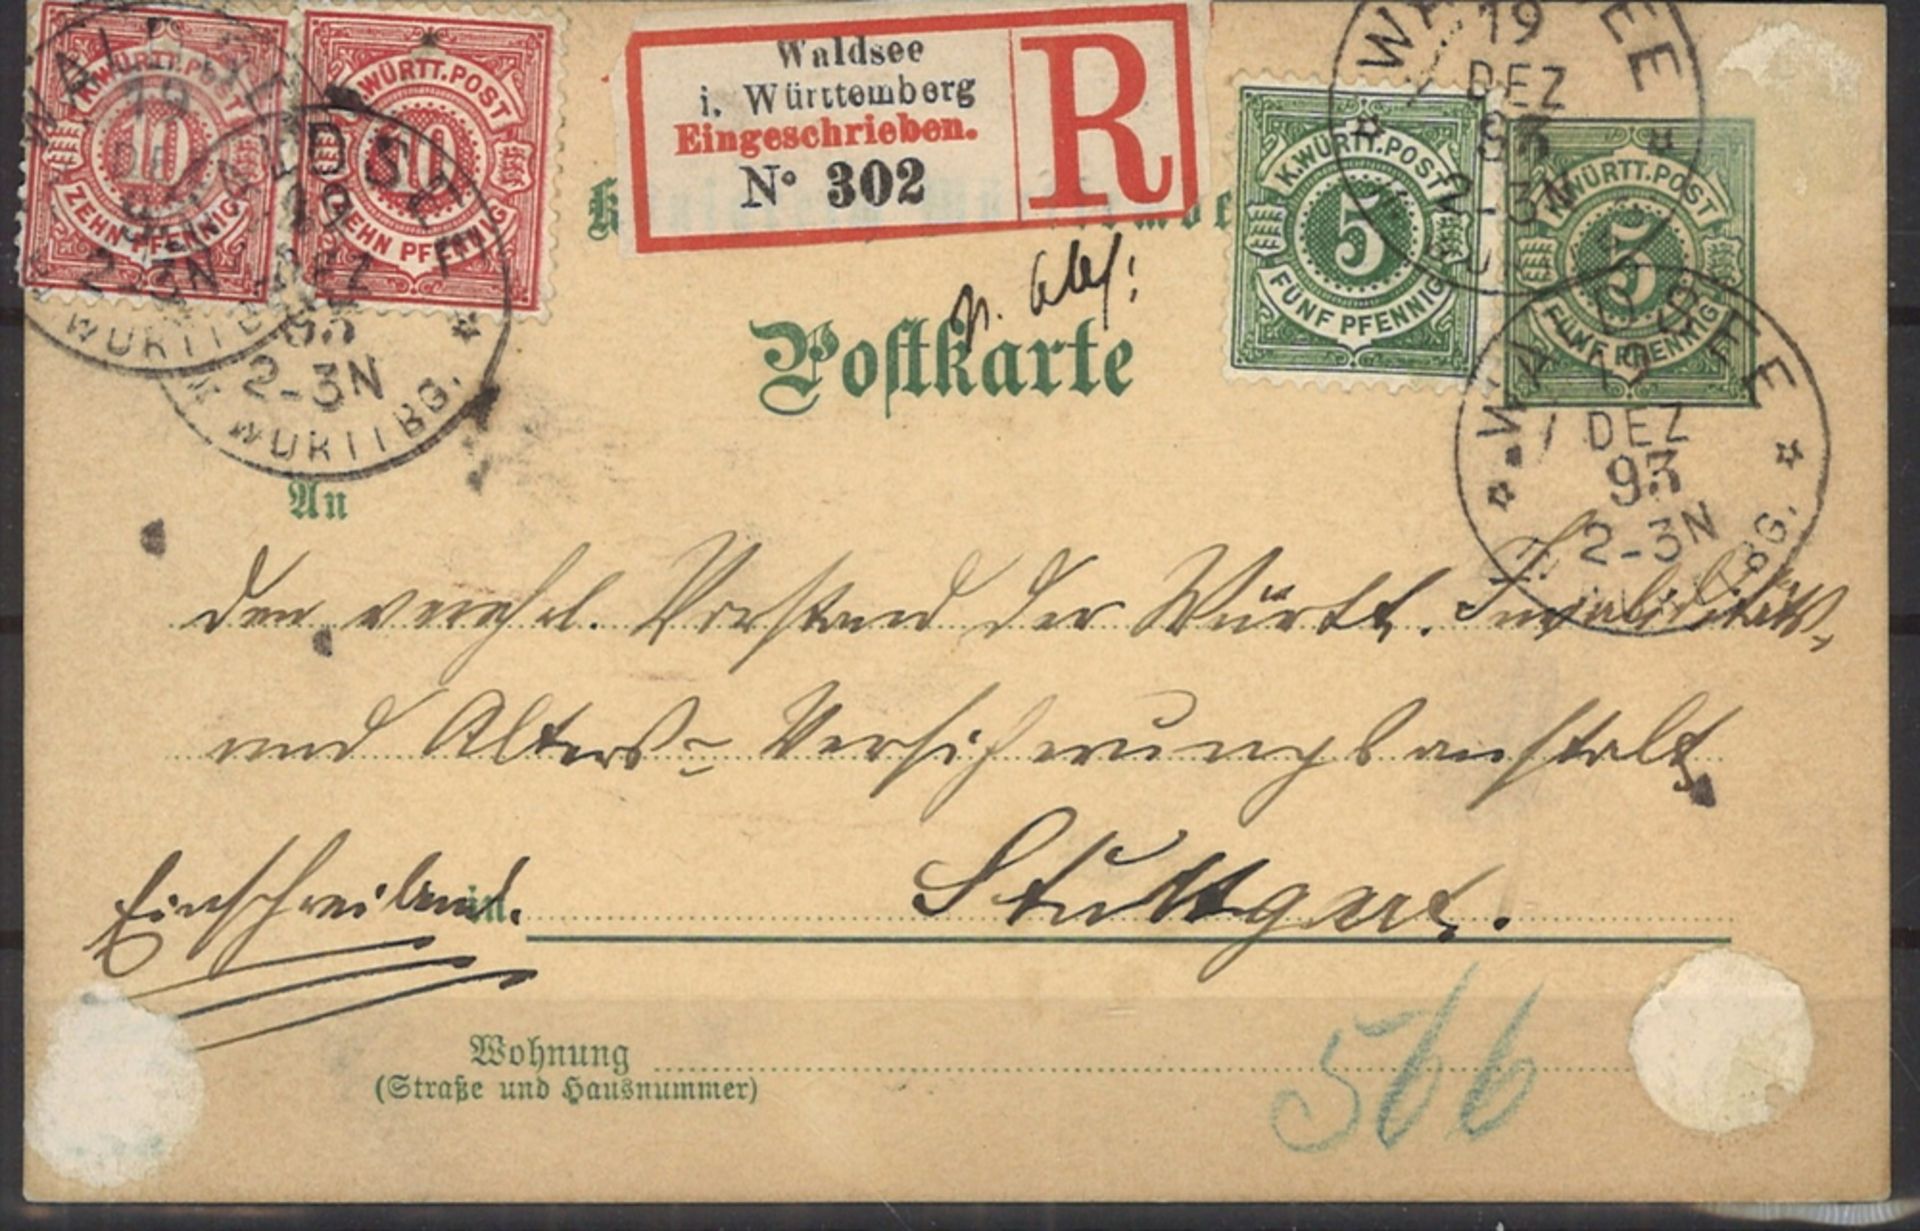 K.WÜRTT.POST
10
ZEHN PFENNIG
K.WÜRTT.POST
10
ZEHN PFENNIG
WALDSEE
19
DEZ
93
2-3N
WÜRTTBG.
WALDSEE
19
DEZ
93
2-3N
WÜRTTBG.
Waldsee
i. Württemberg
Eingeschrieben.
Nº 302
R
K.WÜRTT.POST
5
FÜNF PFENNIG
K.WÜRTT.POST
5
FÜNF PFENNIG
WALDSEE
19
DEZ
93
2-3N
WALDSEE
19
DEZ
93
2-3N
WÜRTTBG.
Postkarte
An
den verehrl. Vorstand der Württ. Invaliditäts-
und Alters- Versicherungsanstalt
Einschreibend. in Stuttgart.
Wohnung
(Straße und Hausnummer)
566